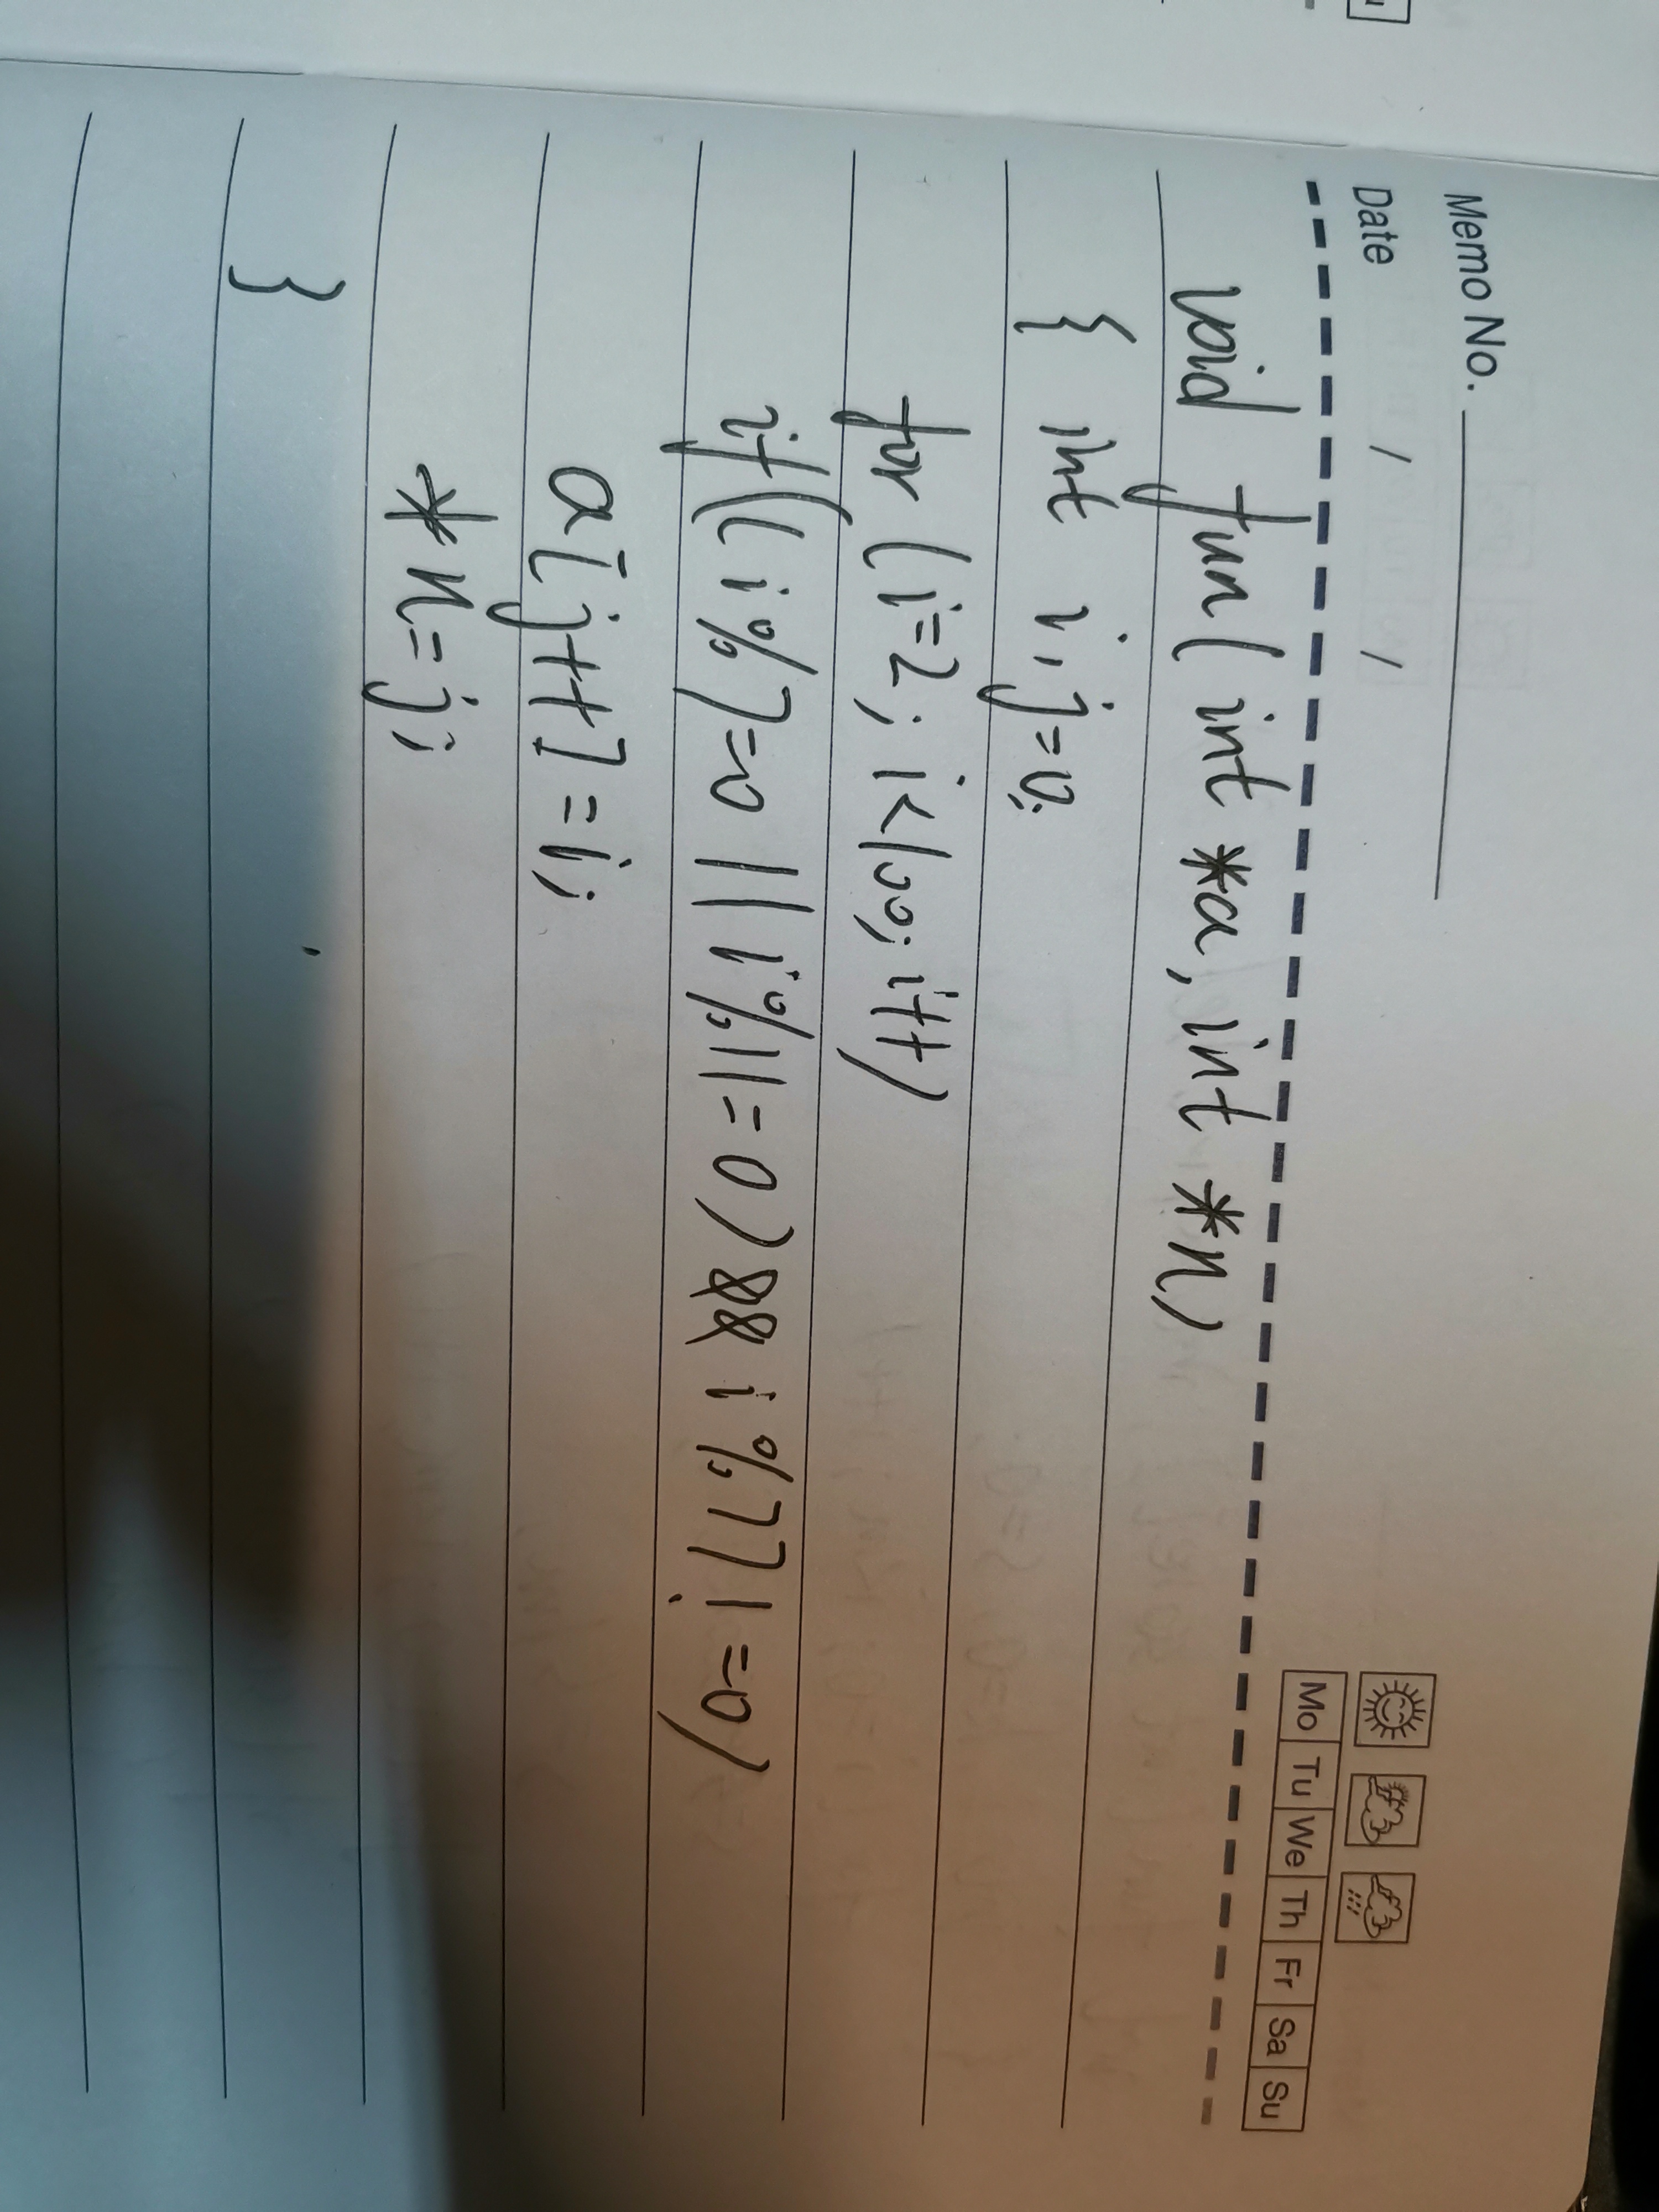 Memo No.
Date / /
Mo Tu We Th Fr Sa Su
void fun(int *a, int *n)
{ int i, j=0;
for (i=2; i<100; i++)
if((i%7=0 || i%11=0)&& i%77!=0)
a[j++]=i;
*n=j;
}